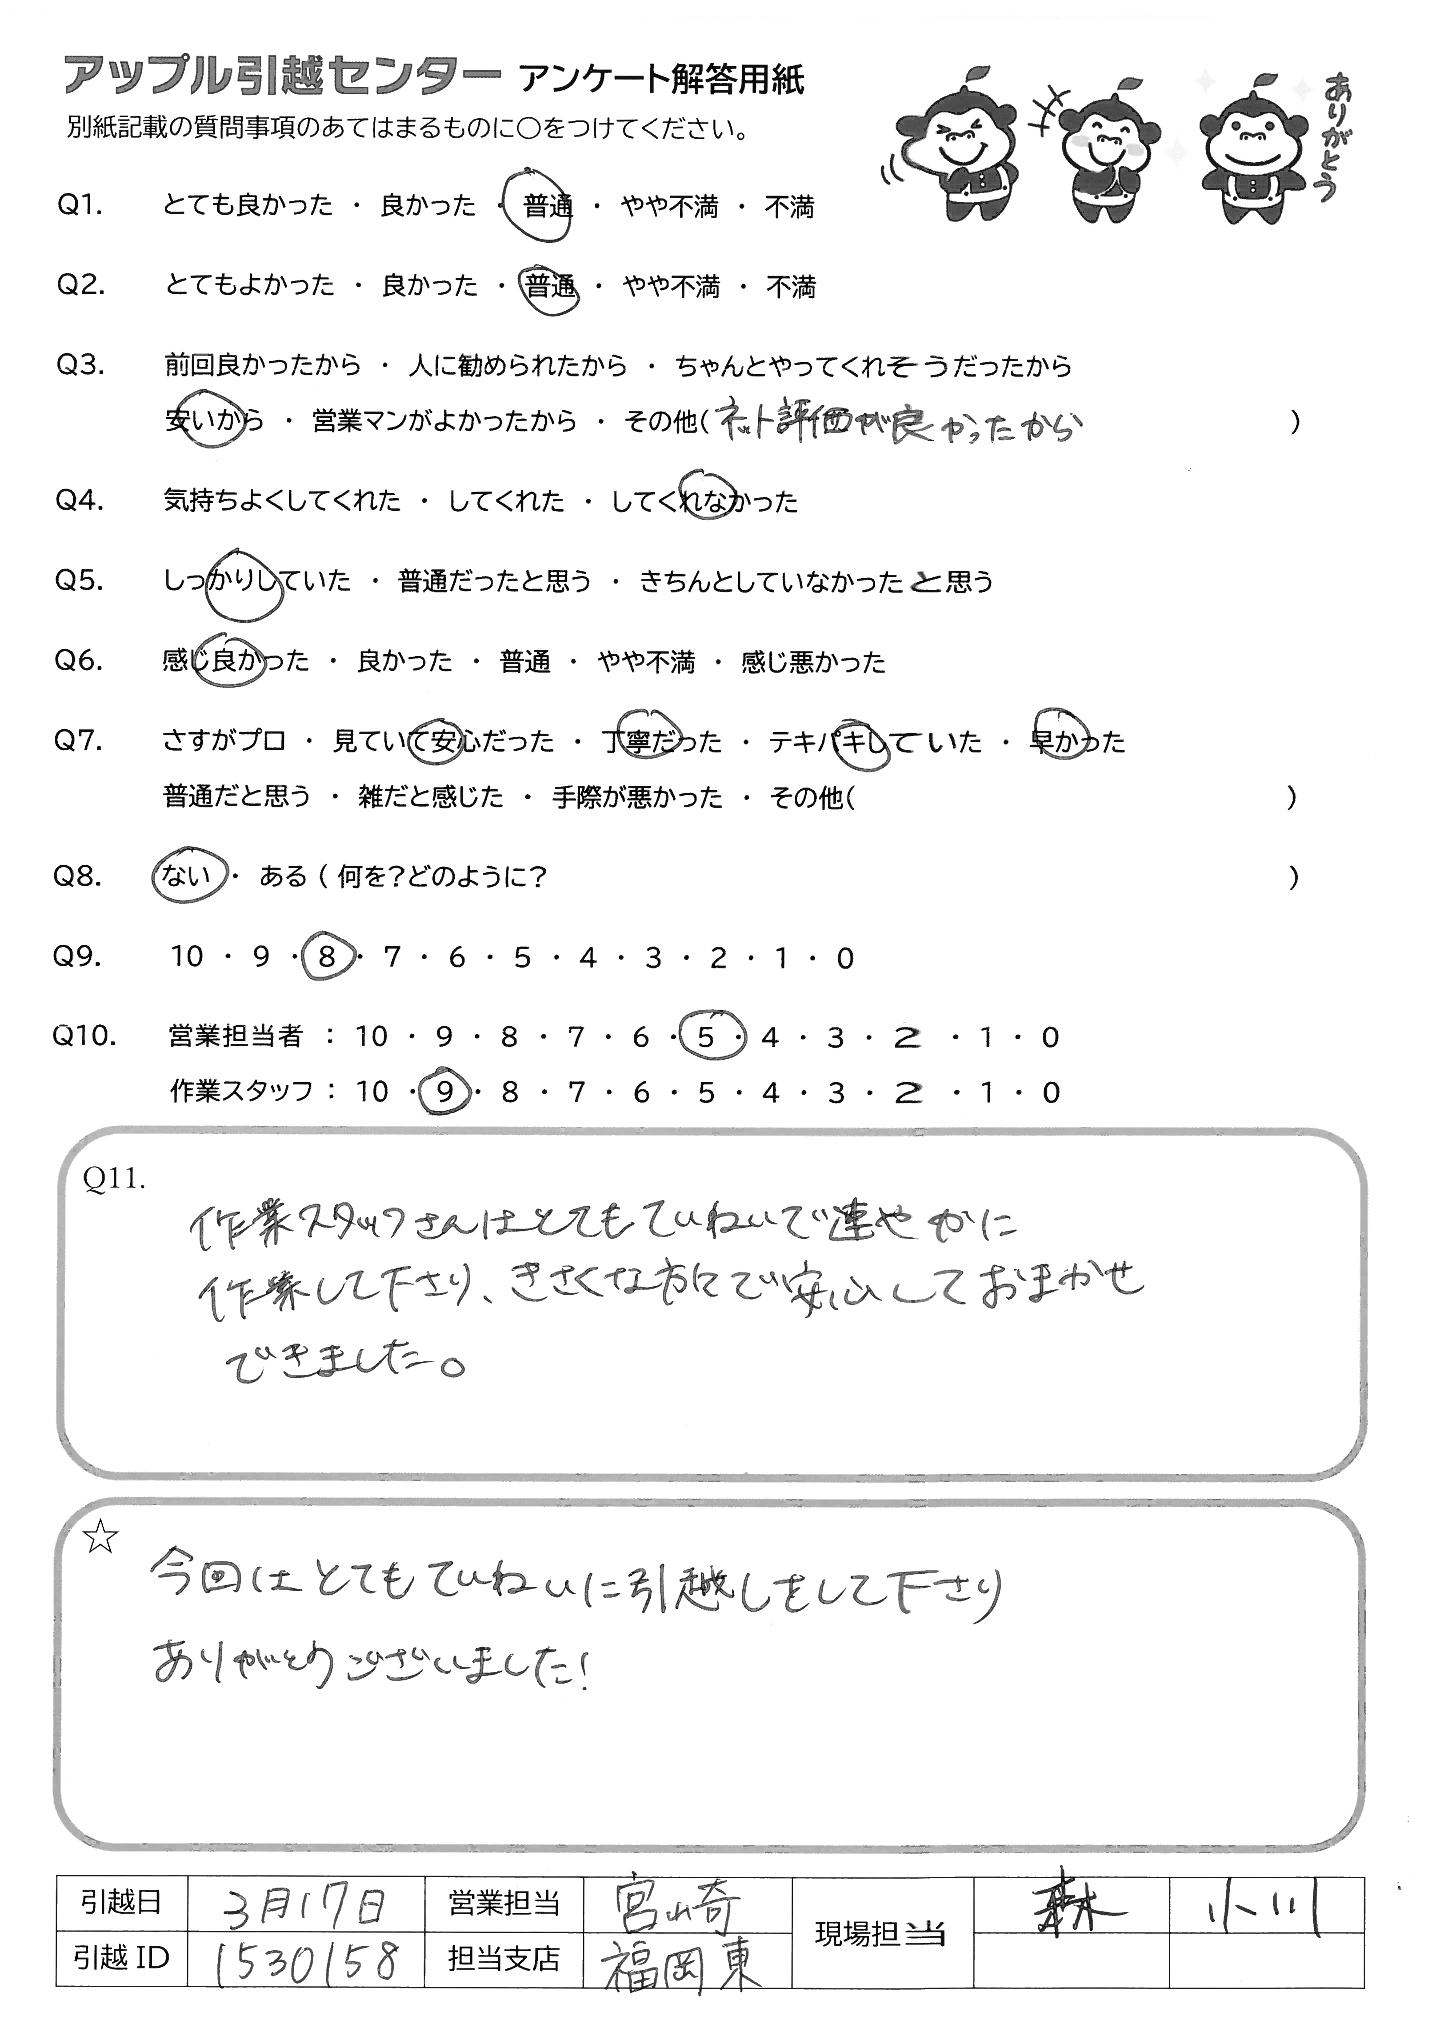 アップル引越センター アンケート解答用紙
別紙記載の質問事項のあてはまるものに〇をつけてください。
ありがとう
Q1. とても良かった ・ 良かった ・ 普通 ・ やや不満 ・ 不満
Q2. とてもよかった ・ 良かった ・ 普通 ・ やや不満 ・ 不満
Q3. 前回良かったから ・ 人に勧められたから ・ ちゃんとやってくれそうだったから
安いから ・ 営業マンがよかったから ・ その他( ネット評価が良かったから )
Q4. 気持ちよくしてくれた ・ してくれた ・ してくれなかった
Q5. しっかりしていた ・ 普通だったと思う ・ きちんとしていなかったと思う
Q6. 感じ良かった ・ 良かった ・ 普通 ・ やや不満 ・ 感じ悪かった
Q7. さすがプロ ・ 見ていて安心だった ・ 丁寧だった ・ テキパキしていた ・ 早かった
普通だと思う ・ 雑だと感じた ・ 手際が悪かった ・ その他( )
Q8. ない ・ ある ( 何を?どのように? )
Q9. 10 ・ 9 ・ 8 ・ 7 ・ 6 ・ 5 ・ 4 ・ 3 ・ 2 ・ 1 ・ 0
Q10. 営業担当者 : 10 ・ 9 ・ 8 ・ 7 ・ 6 ・ 5 ・ 4 ・ 3 ・ 2 ・ 1 ・ 0
作業スタッフ : 10 ・ 9 ・ 8 ・ 7 ・ 6 ・ 5 ・ 4 ・ 3 ・ 2 ・ 1 ・ 0
Q11.
作業スタッフさんはとてもていねいで速やかに
作業して下さり、きさくな方々で安心しておまかせ
できました。
☆
今回はとてもていねいに引越しをして下さり
ありがとうございました!
引越日 3月17日 営業担当 宮崎 現場担当 森 小川
引越ID 1530158 担当支店 福岡東